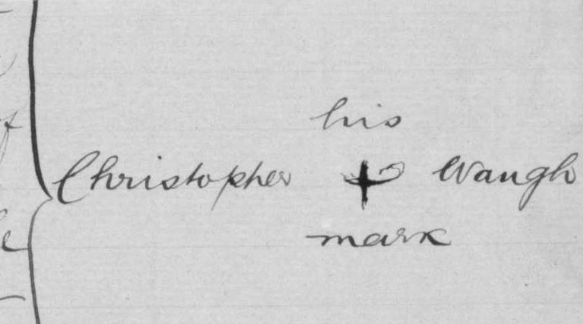 his
Christopher + Waugh
mark